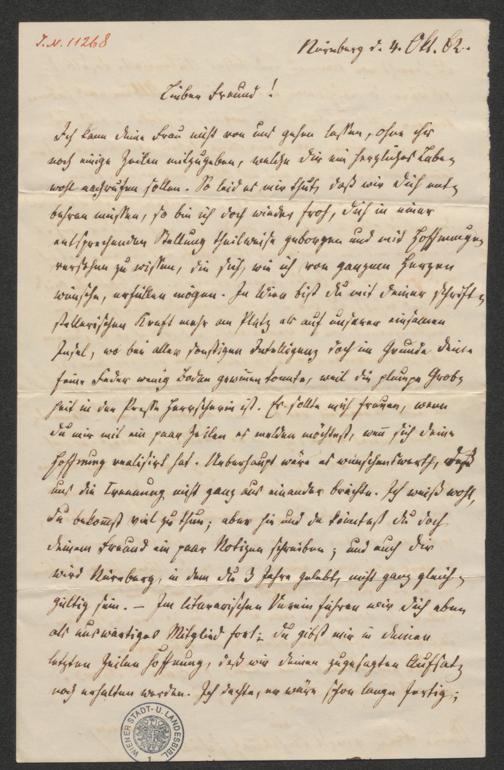 J.N. 11268
Nürnberg d. 4. Okt. 82.
Lieber Freund!
Ich kann deine Frau nicht von uns gehen lassen, ohne ihr
noch einige Zeilen mitzugeben, welche dir ein herzliches Lebe-
wohl nachrufen sollen. So leid es mir thut, daß wir dich ent-
behren müssen, so bin ich doch wieder froh, dich in einer
entsprechenden Stellung theilweise geborgen und mit Hoffnungen
versehen zu wissen, die sich, wie ich von ganzem Herzen
wünsche, erfüllen mögen. In Wien bist du mit deiner schrift-
stellerischen Kraft mehr am Platz als auf unserer einsamen
Insel, wo bei aller sonstigen Intelligenz doch im Grunde deine
feine Feder wenig Boden gewinnen konnte, weil die plumpe Grob-
heit in der Presse Herrscherin ist. Es sollte mich freuen, wenn
du mir mit ein paar Zeilen es melden möchtest, wenn sich deine
Hoffnung realisirt hat. Ueberhaupt wäre es wünschenswerth, daß
uns die Trennung nicht ganz aus einander brächte. Ich weiß wohl,
du bekommst viel zu thun; aber hie und da könntest du doch
deinem Freund ein paar Notizen schreiben; und auch dir
wird Nürnberg, in dem du 3 Jahre gelebt, nicht ganz gleich-
gültig sein. – Im literarischen Verein führen wir dich eben
als auswärtiges Mitglied fort; du gibst mir in deinen
letzten Zeilen Hoffnung, daß wir deinen zugesagten Aufsatz
noch erhalten werden. Ich dachte, er wäre schon lange fertig;
WIENER STADT- U. LANDESBIBL.
1